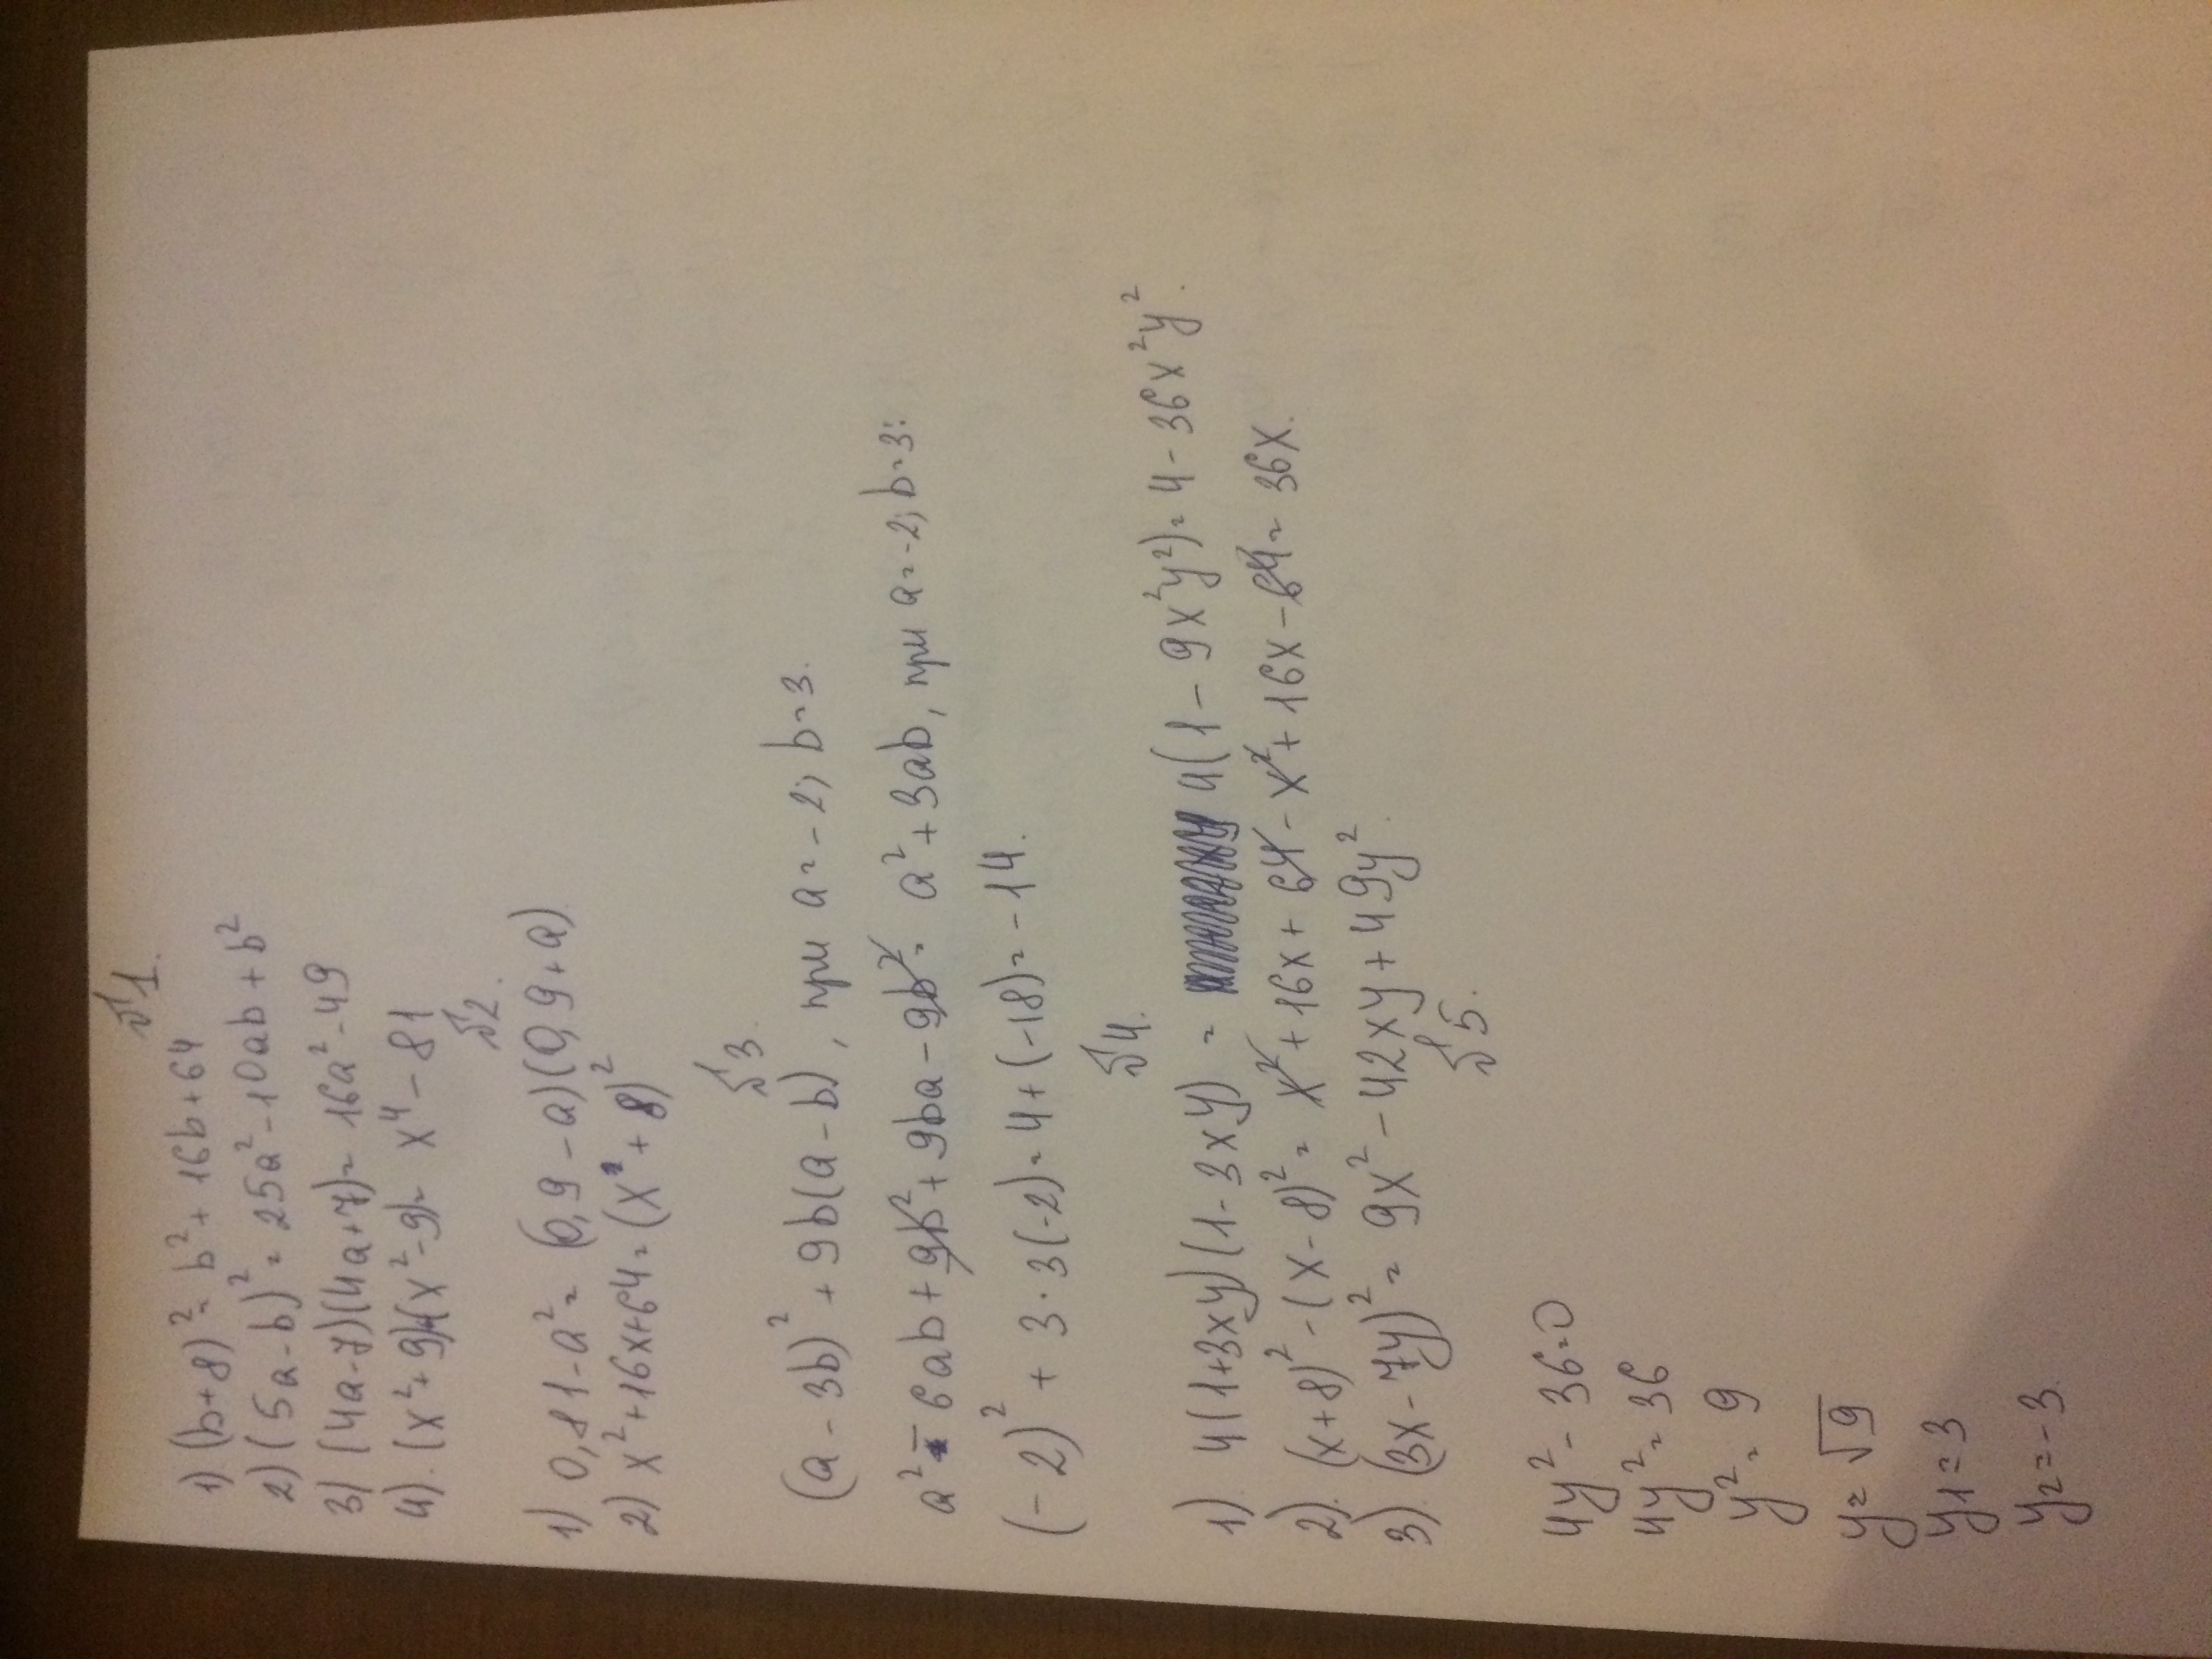 №1.
1). (b+8)² = b² + 16b + 64
2) (5a - b)² = 25a² - 10ab + b²
3) (4a-7)(4a+7) = 16a² - 49
4). (x² + 9)(x² - 9) = x⁴ - 81
№2.
1) 0,81 - a² = (0,9 - a)(0,9 + a)
2) x² + 16x + 64 = (x + 8)²
№3.
(a - 3b)² + 9b(a - b), при a = -2; b = 3.
a² - 6ab + 9b² + 9ba - 9b² = a² + 3ab, при a = -2; b = 3:
(-2)² + 3 · 3(-2) = 4 + (-18) = -14.
№4.
1). 4(1+3xy)(1-3xy) = 4(1 - 9x²y²) = 4 - 36x²y².
2). (x+8)² - (x-8)² = x² + 16x + 64 - x² + 16x - 64 = 36x.
3). (3x - 7y)² = 9x² - 42xy + 49y².
№5.
4y² - 36 = 0
4y² = 36
y² = 9
y = √9
y₁ = 3
y₂ = -3.